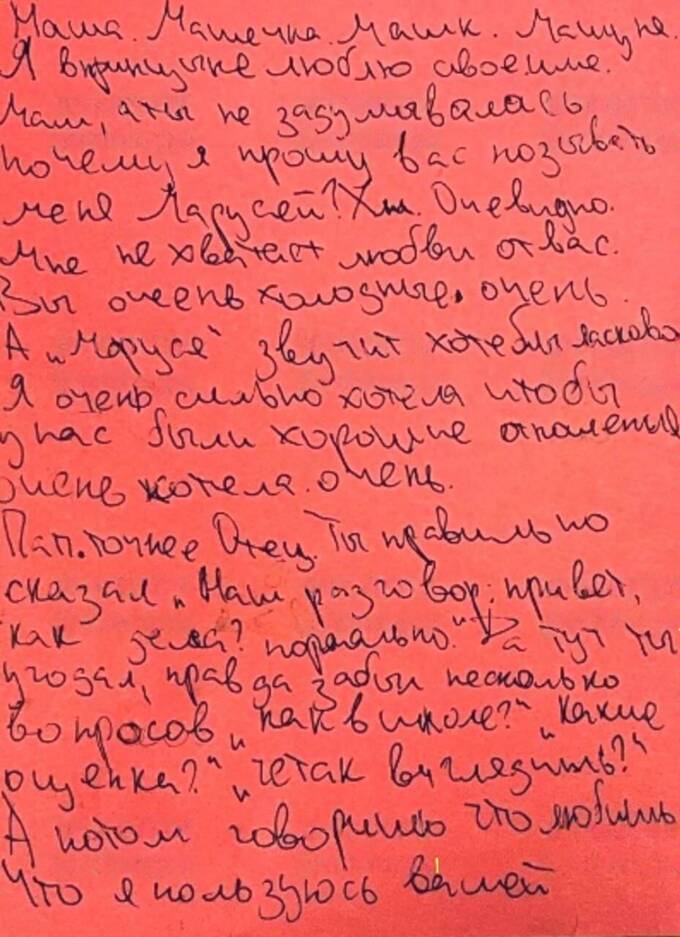 Маша. Машечка. Машк. Машуне.
Я впринцыпе люблю своеиме.
Мам, а ты не задумывалась
почему я прошу вас позывать
меня Марусей? Хм. Очевидно.
Мне не хватает любви от вас.
Вы очеень холодные. очень.
А "Маруся" звучит хотебы ласково
Я очень сильно хотела чтобы
у нас были хорошие
очень хотела. очень.
Пап. точнее Отец. Ты правильно
сказал "Наш разговор: привет,
как дела? нормально." Да тут ты
угодал, правда забыл несколько
вопросов "как в школе?" "какие
ощенка?" "четак выглядишь?"
А потом говоришь что любишь
Что я пользуюсь вашей